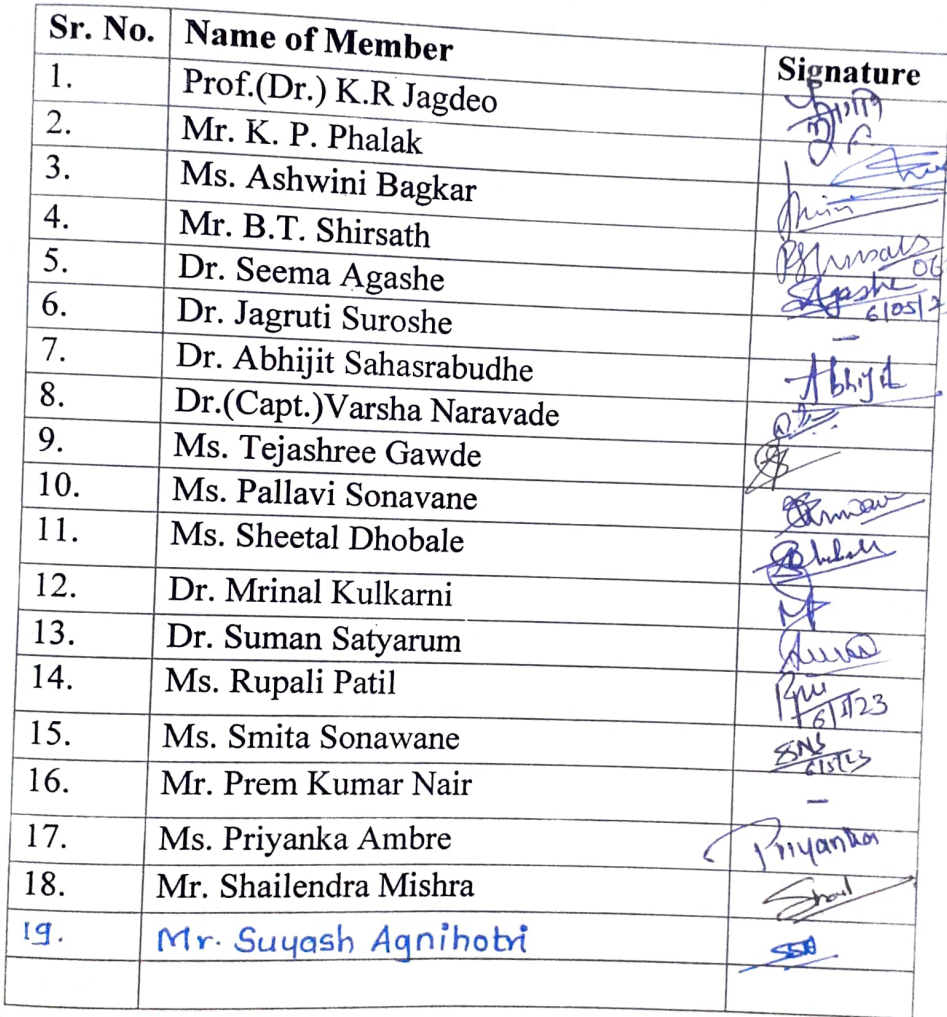 Sr. No. Name of Member Signature
1. Prof.(Dr.) K.R Jagdeo
2. Mr. K. P. Phalak
3. Ms. Ashwini Bagkar
4. Mr. B.T. Shirsath
5. Dr. Seema Agashe Agashe 6/05/2
6. Dr. Jagruti Suroshe –
7. Dr. Abhijit Sahasrabudhe Abhijit
8. Dr.(Capt.)Varsha Naravade
9. Ms. Tejashree Gawde
10. Ms. Pallavi Sonavane
11. Ms. Sheetal Dhobale
12. Dr. Mrinal Kulkarni
13. Dr. Suman Satyarum
14. Ms. Rupali Patil
15. Ms. Smita Sonawane SNS 6/5/23
16. Mr. Prem Kumar Nair –
17. Ms. Priyanka Ambre Priyanka
18. Mr. Shailendra Mishra
19. Mr. Suyash Agnihotri